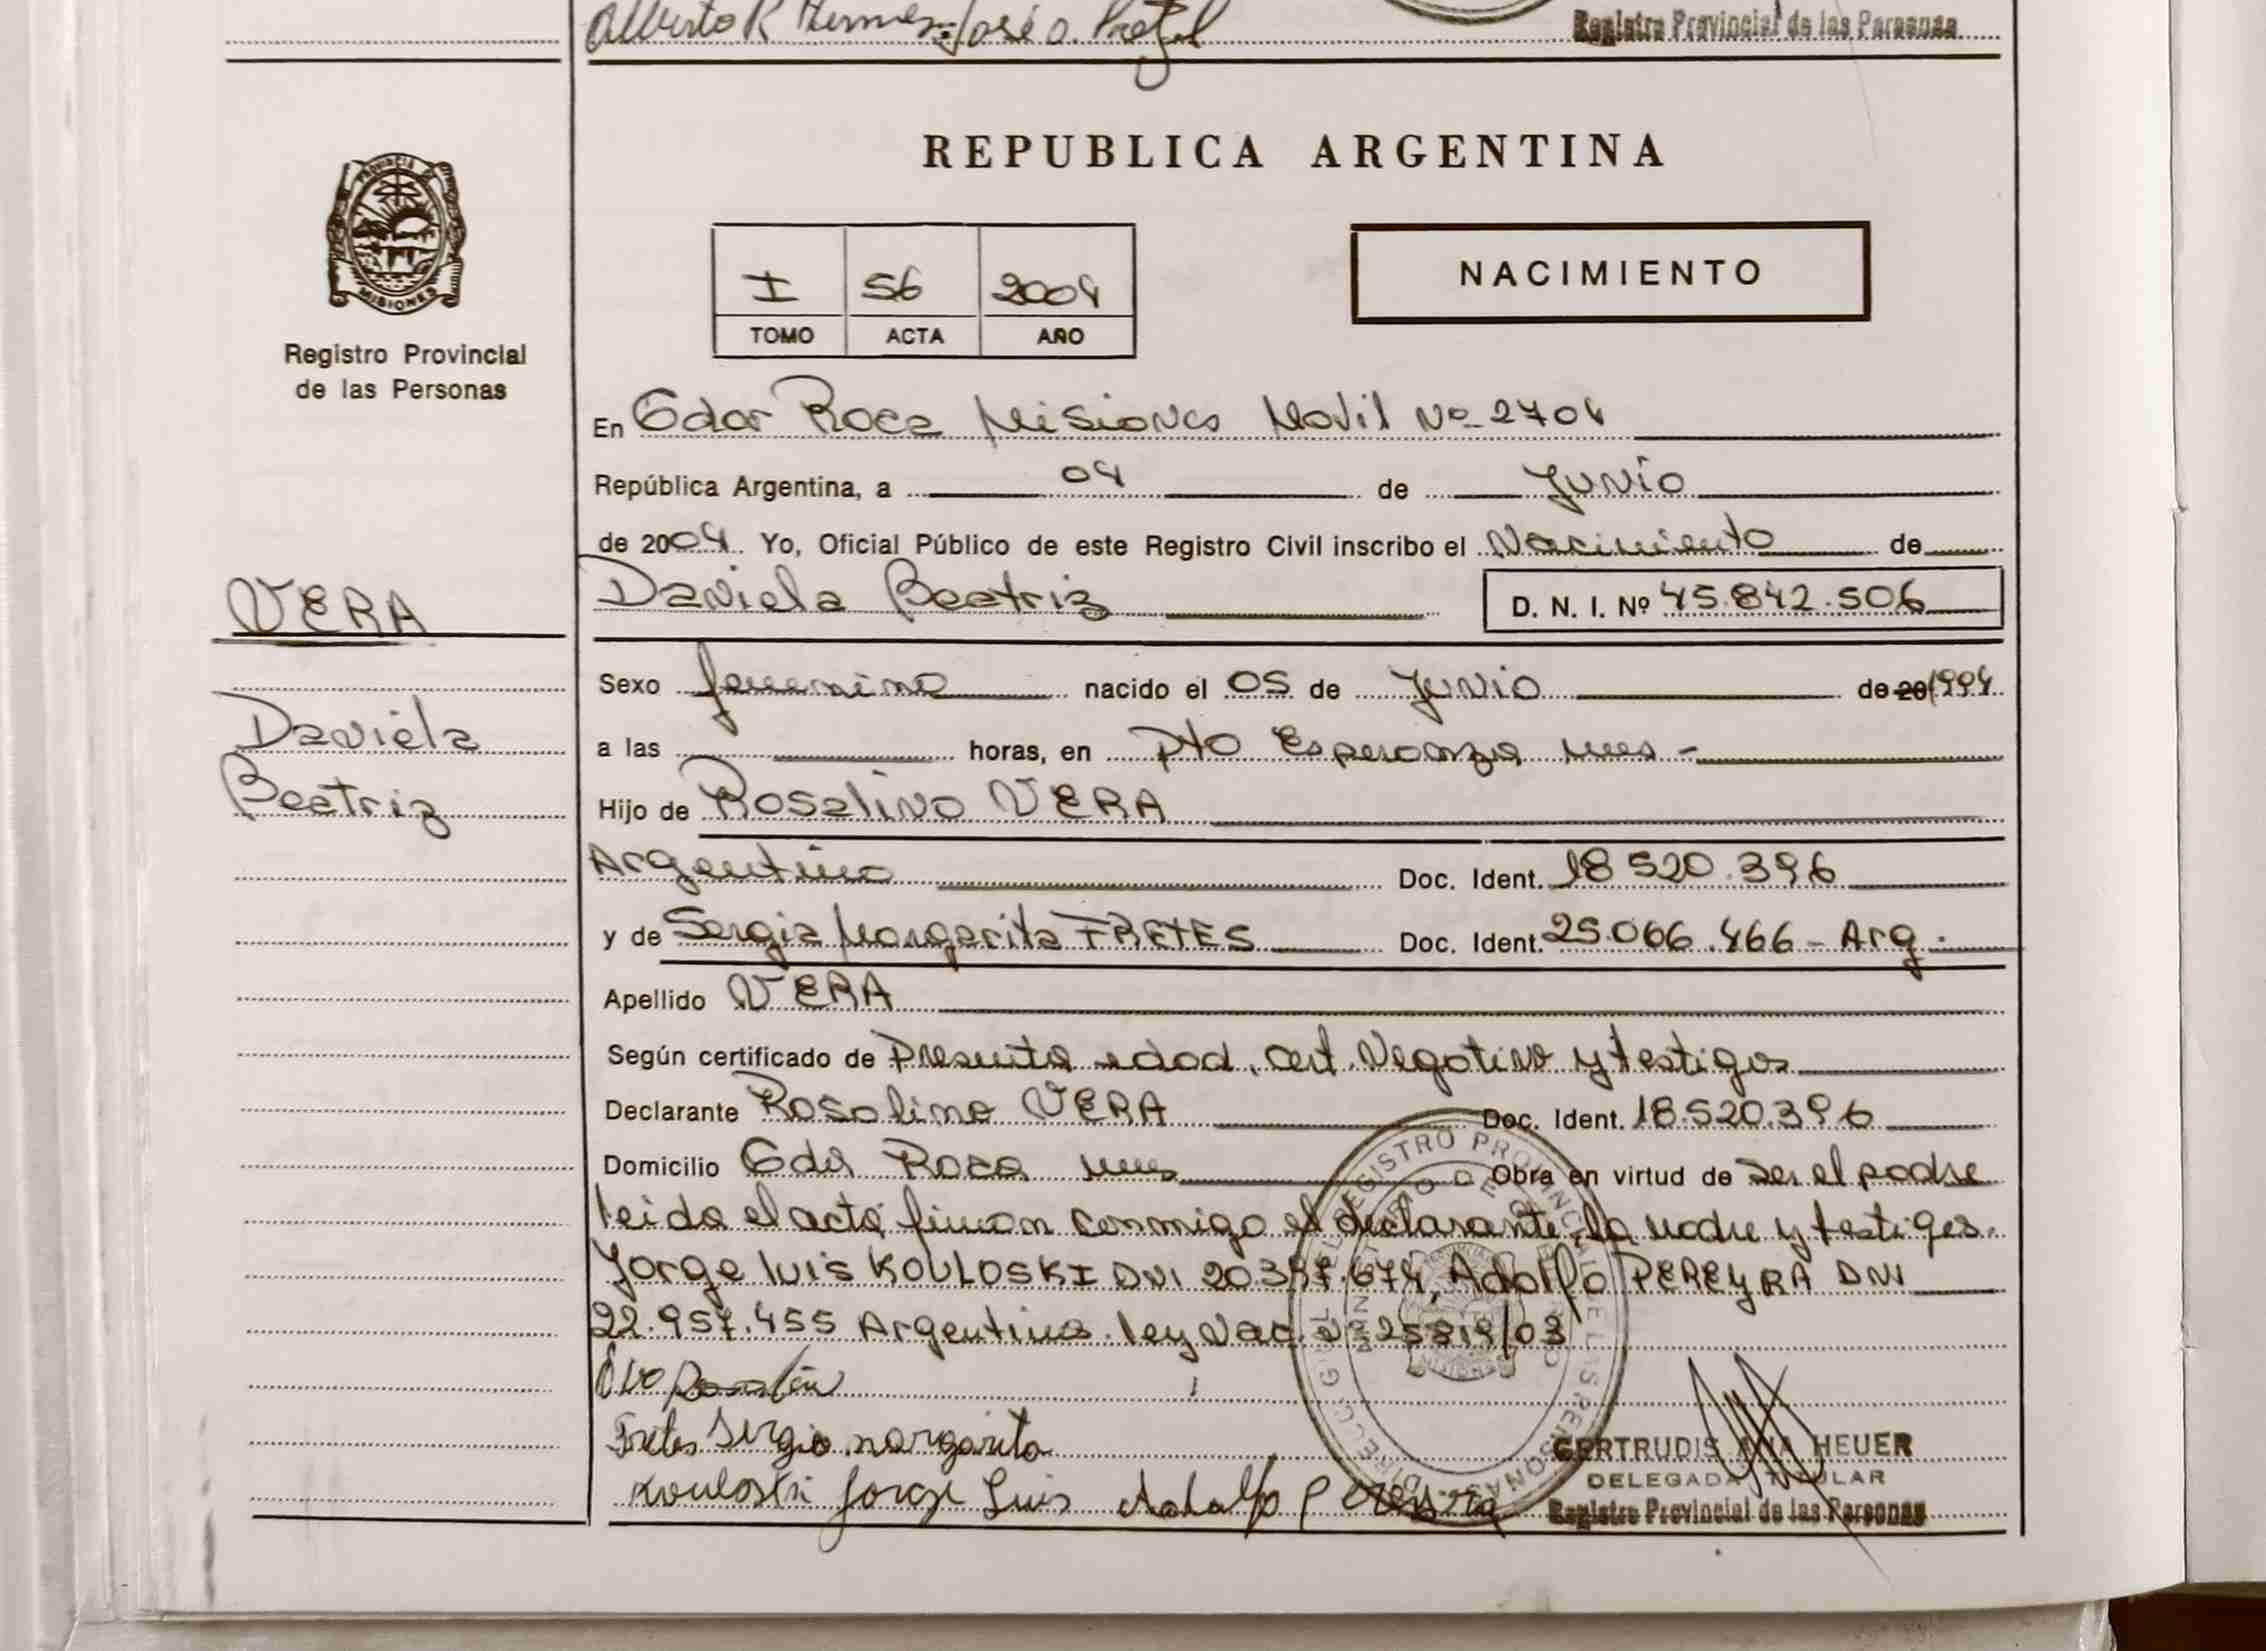 Alberto R José O.
Registro Provincial de las Personas
PROVINCIA DE
MISIONES
Registro Provincial
de las Personas
REPUBLICA ARGENTINA
I 56 2004
TOMO ACTA AÑO
NACIMIENTO
En Gdor Roca Misiones Movil Nº 2704
República Argentina, a 04 de Junio
de 2004 Yo, Oficial Público de este Registro Civil inscribo el Nacimiento de
VERA
Daniela Beatriz D. N. I. Nº 45.842.506
Sexo femenino nacido el 05 de Junio de 20 1994
Daniela
a las horas, en Pto Esperanza Mnes -
Beatriz
Hijo de Rosalino VERA
Argentino Doc. Ident. 18520.396
y de Sergia Margarita FRETES Doc. Ident. 25.066.466 - Arg.
Apellido VERA
Según certificado de Presunta edad, cert. Negativo y testigos
Declarante Rosalino VERA Doc. Ident. 18.520.396
Domicilio Gdor Roca Mnes Obra en virtud de ser el padre
leida el acta firman conmigo el declarante, la madre y testigos.
Jorge luis KOULOSKI DNI Adolfo PEREYRA DNI
22.957.455 Argentinos. ley Nac. Nº 25819/03
Fretes Sergia margarita
Kouloski Jorge Luis Adolfo Pereyra
GERTRUDIS ANA HEUER
DELEGADA TITULAR
Registro Provincial de las Personas